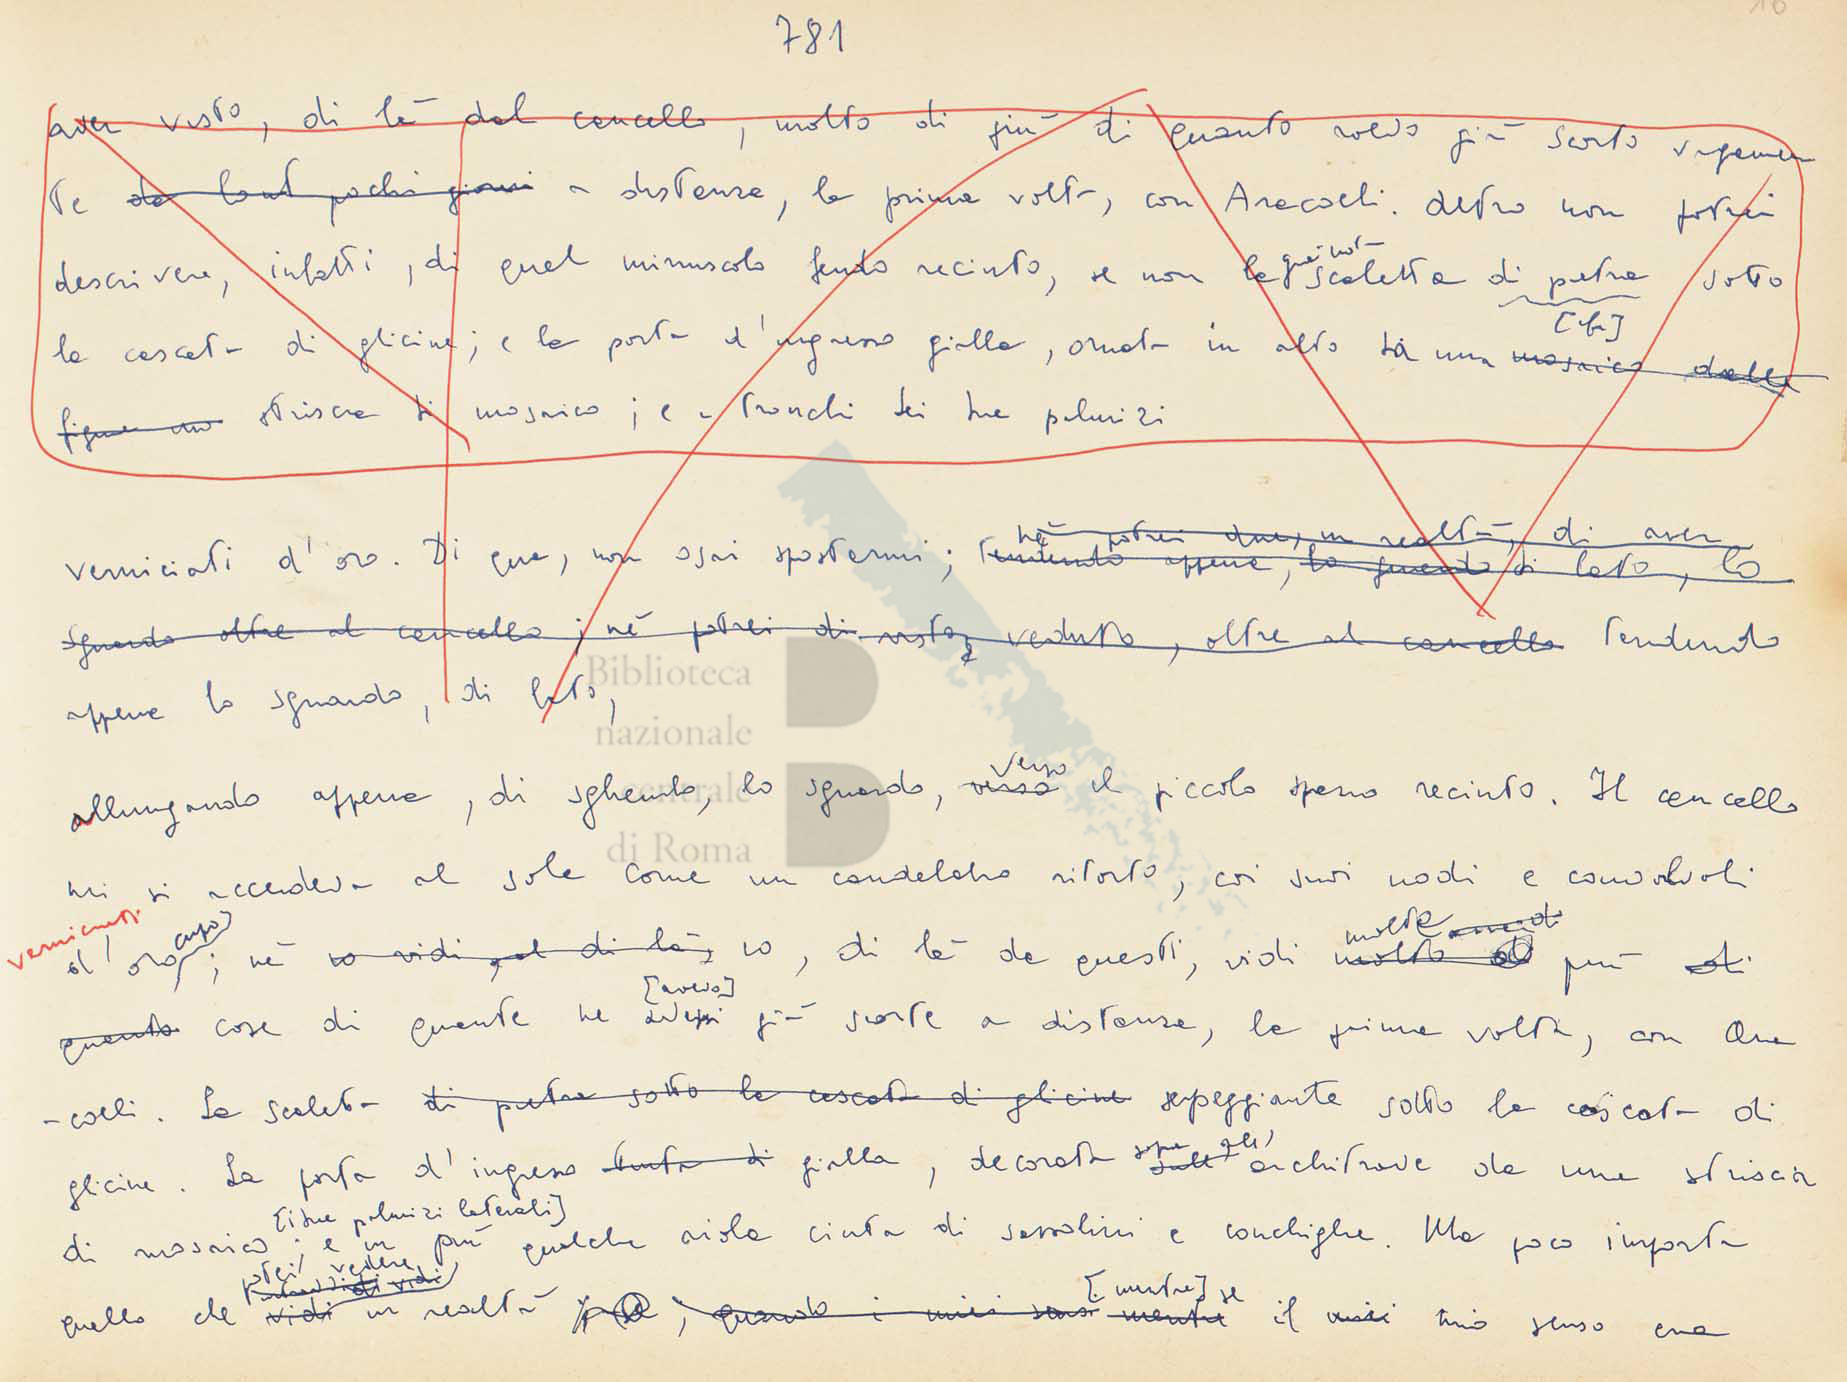 781
aver visto, di là dal cancello, molto di più di quanto avevo già scorto vagamen
te da pochi giorni a distanza, la prima volta, con Aracoeli. Altro non potrei
descrivere, infatti, di quel minuscolo recinto, se non la scaletta di pietra sotto
la cascata di glicine; e la porta d'ingresso gialla, ornata in alto da una mosaico dalle
figure una striscia di mosaico; e i tronchi dei due palmizi
verniciati d'oro. Di qua, non osai spostarmi;
né potrei dire, in realtà, di aver
tendendo appena, lo sguardo di lato, lo
sguardo oltre al cancello; né potrei di visto, veduto, oltre al cancello tendendo
appena lo sguardo, di lato,
allungando appena, di sghembo, lo sguardo, verso verso il piccolo spazio recinto. Il cancello
mi si accendeva al sole come un candelabro ritorto, coi suoi nodi e convolvoli
verniciati
d'oro cupo]; né io vidi, al di là, io, di là da questi, vidi molto molte più di
quanto cose di quante ne avessi [avevo] già scorte a distanza, la prima volta, con Ara
-coeli. La scaletta di pietra sotto la cascata di glicine serpeggiante sotto la cascata di
glicine. La porta d'ingresso tinta di gialla, decorata sull' sopra gli' architrave da una striscia
di mosaico; [i due palmizi laterali] e in più qualche aiola cinta di sassolini e conchiglie. Ma poco importa
quello che vidi potei vedere in realtà, quando i miei sensi mentre [mentre] se il mio senso era
Biblioteca
nazionale
centrale
di Roma